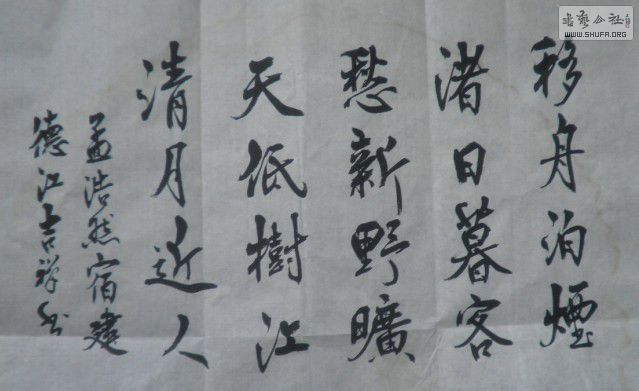 移舟泊煙
渚日暮客
愁新野曠
天低樹江
清月近人
孟浩然宿建
德江吉祥书
书艺公社
WWW.SHUFA.ORG